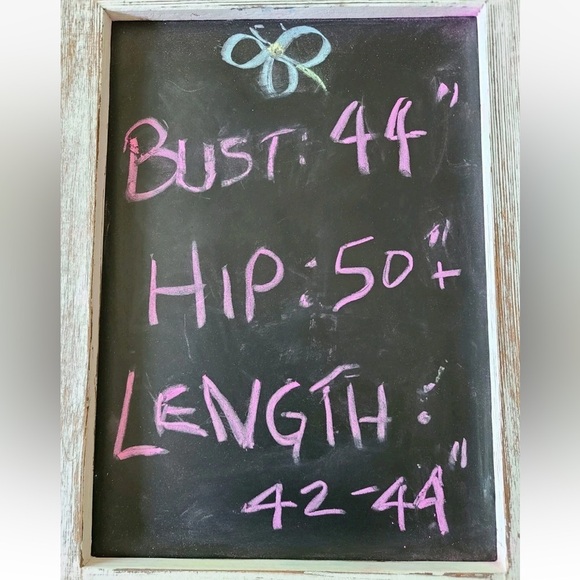 BUST: 44"
HIP: 50"+
LENGTH:
42-44"